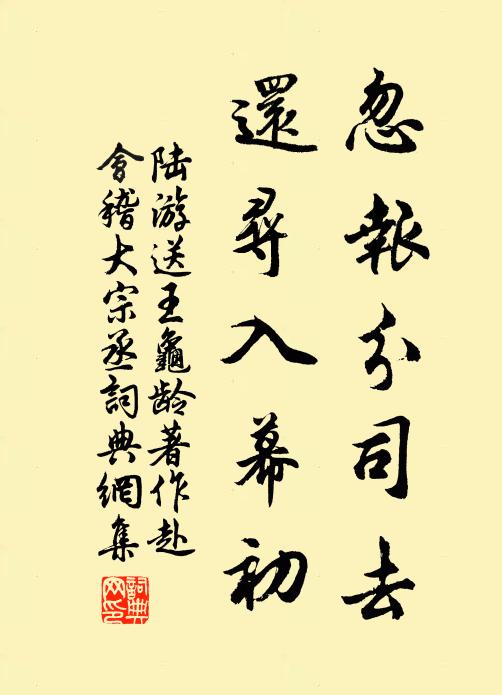 忽報分司去
還尋入幕初
陆游送王龜龄著作赴
會稽大宗丞詞典網集
詞典網印